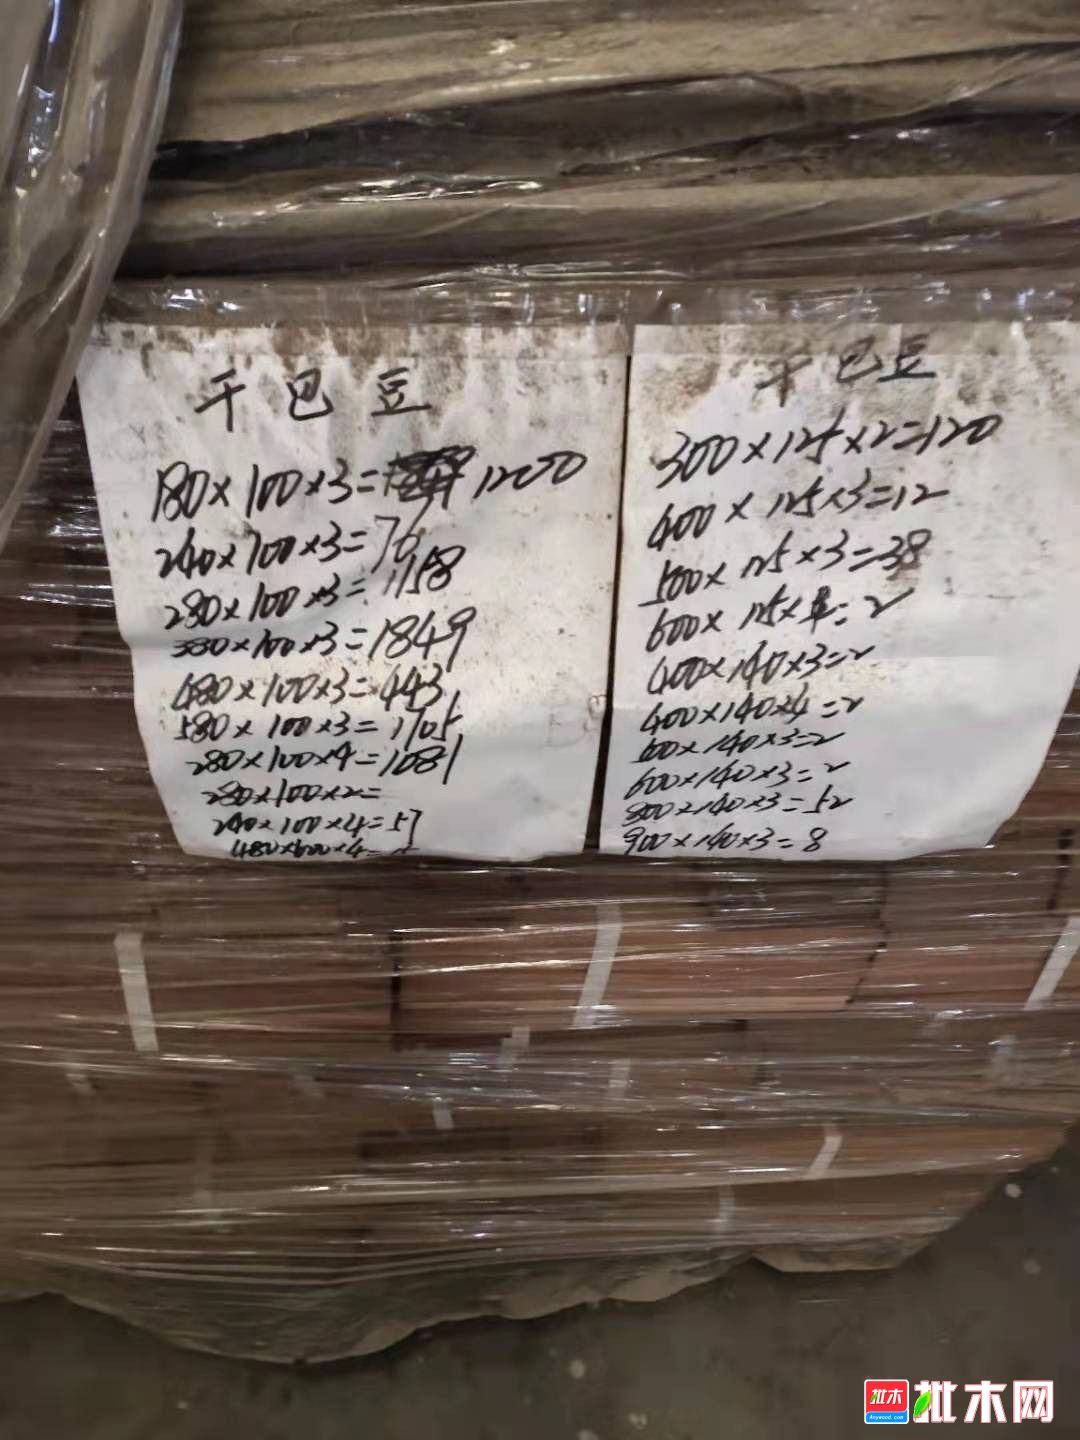 干巴豆
180×100×3=1200
240×100×3=76
280×100×3=1158
380×100×3=1849
480×100×3=443
580×100×3=1705
280×100×4=1081
280×100×2=
240×100×4=57
干巴豆
300×125×2=120
400×125×3=12
500×125×3=38
600×125×=2
400×140×3=2
400×140×4=2
600×140×3=2
800×140×3=52
900×140×3=8
批木
Anywood.com
批木网